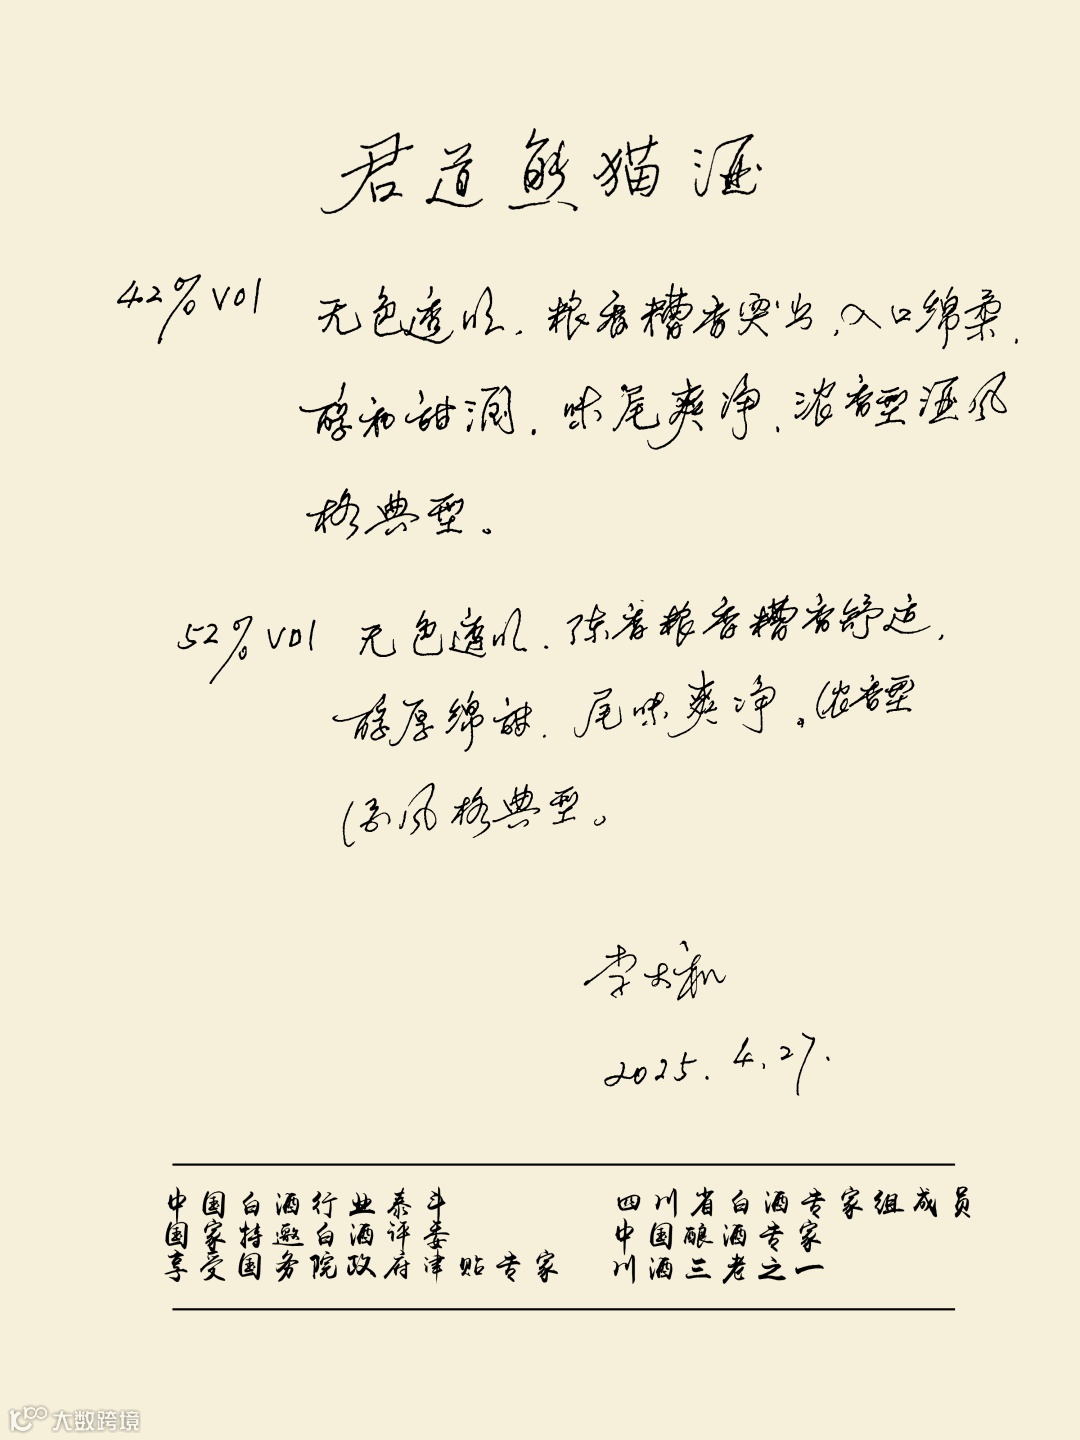 君道熊猫酒
42%vol 无色透明，粮香糟香突出，入口绵柔，
醇和甜润，味尾爽净，浓香型酒风
格典型。
52%vol 无色透明，陈香粮香糟香舒适，
醇厚绵甜，尾味爽净。浓香型
酒风格典型。
李大和
2025.4.27.
中国白酒行业泰斗 四川省白酒专家组成员
国家特邀白酒评委 中国酿酒专家
享受国务院政府津贴专家 川酒三老之一
大数跨境